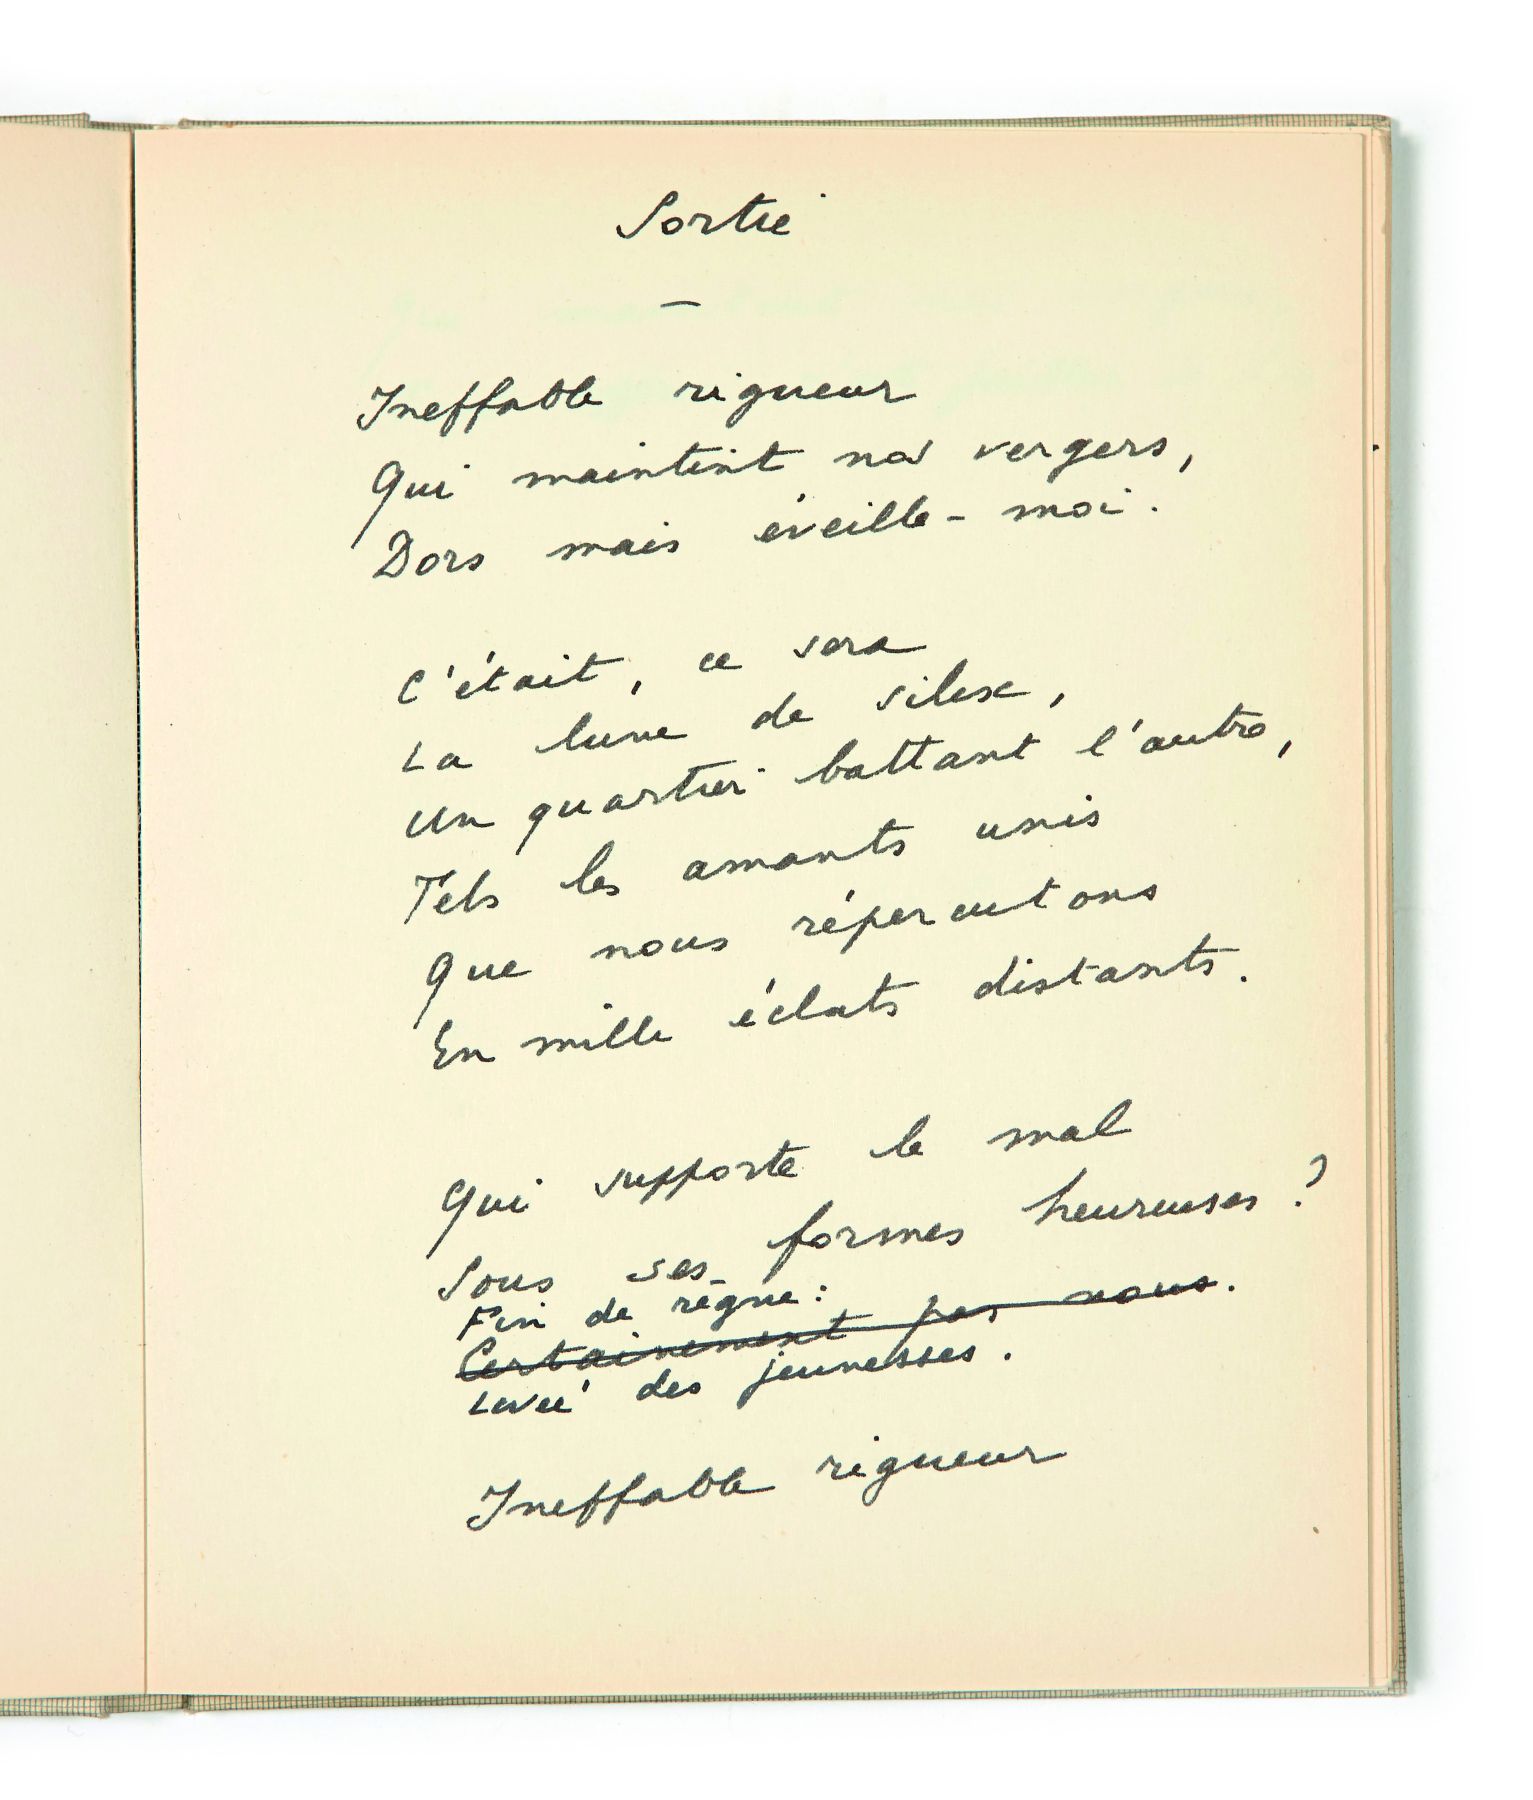 Sortie
—
Ineffable rigueur
Qui maintint nos vergers,
Dors mais éveille-moi.
C'était, ce sera
La lune de silex,
Un quartier battant l'autre,
Tels les amants unis
Que nous répercutons
En mille éclats distants.
Qui supporte le mal
Sous ses formes heureuses ?
Fin de règne :
Certainement pas nous.
Levée des jeunesses.
Ineffable rigueur